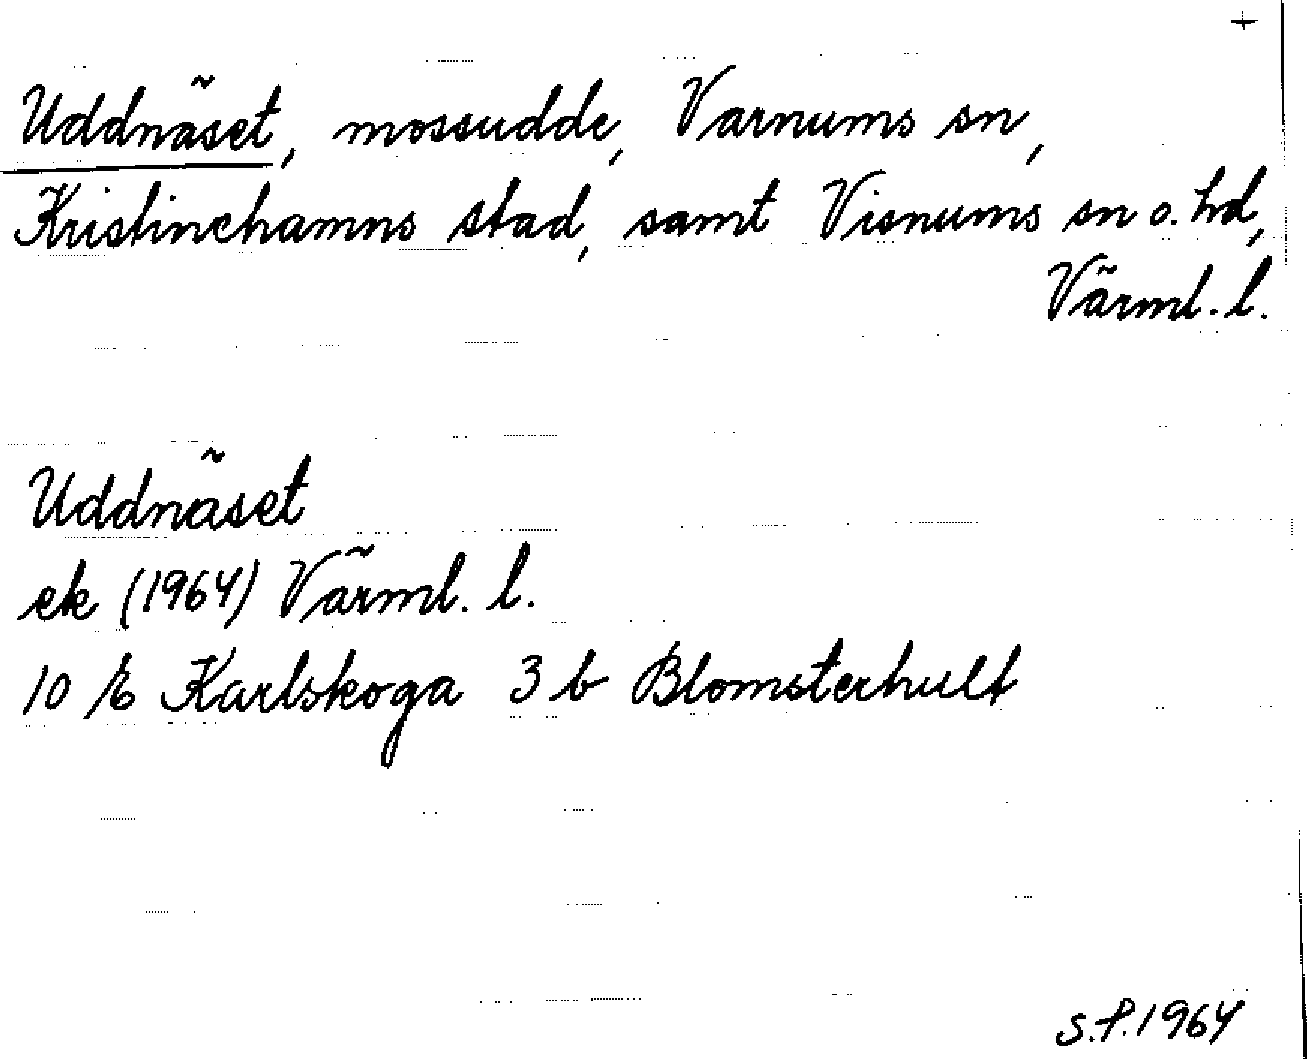 +
Uddnäset, mossudde, Varnums sn,
Kristinehamns stad, samt Visnums sn o. hd,
Värml. l.
Uddnäset
ek (1964) Värml. l.
10 E Karlskoga 3 b Blomsterhult
S.P. 1964